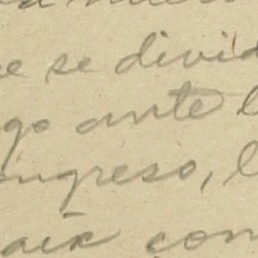 e se divid
go ante l
ongreso, l
aix con